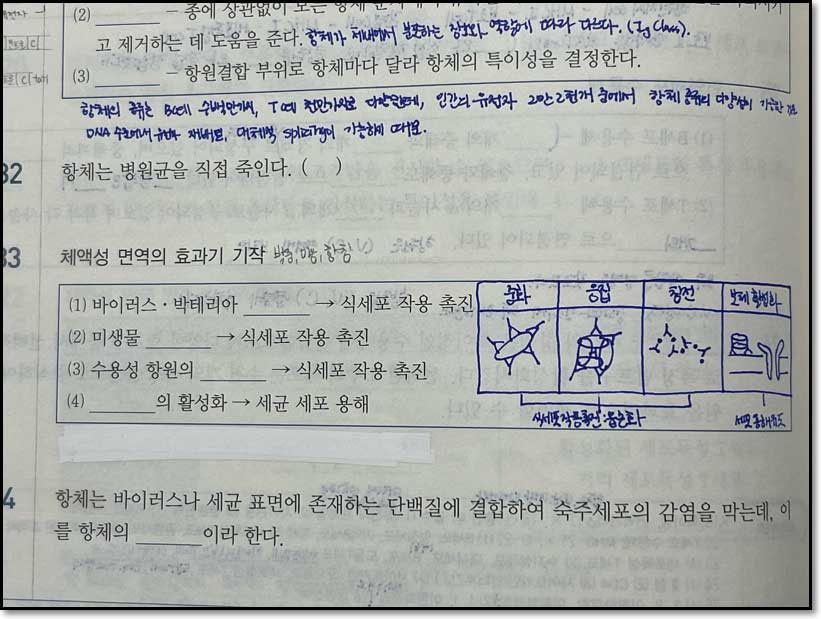 (2) ________ – 종에 상관없이 모든 항체
고 제거하는 데 도움을 준다. 항체가 체내에서 분포하는 장소와 역할에 따라 다르다. (Ig Class).
(3) ________ – 항원결합 부위로 항체마다 달라 항체의 특이성을 결정한다.
항체의 종류는 B에 수백만가지, T에 천만가지로 다양한데, 인간의 유전자 2만 2천개 중에서 항체 종류의 다양성이 가능한
DNA 수준에서 유전자 재배열, 대체적 splicing이 가능하기 때문.
32 항체는 병원균을 직접 죽인다. ( )
33 체액성 면역의 효과기 기작
(1) 바이러스·박테리아 ________ → 식세포 작용 촉진
(2) 미생물 ________ → 식세포 작용 촉진
(3) 수용성 항원의 ________ → 식세포 작용 촉진
(4) ________의 활성화 → 세균 세포 용해
중화 응집 침전 보체 활성화
식세포작용촉진: 옵소닌화
세포용해유도
4 항체는 바이러스나 세균 표면에 존재하는 단백질에 결합하여 숙주세포의 감염을 막는데, 이
를 항체의 ________이라 한다.